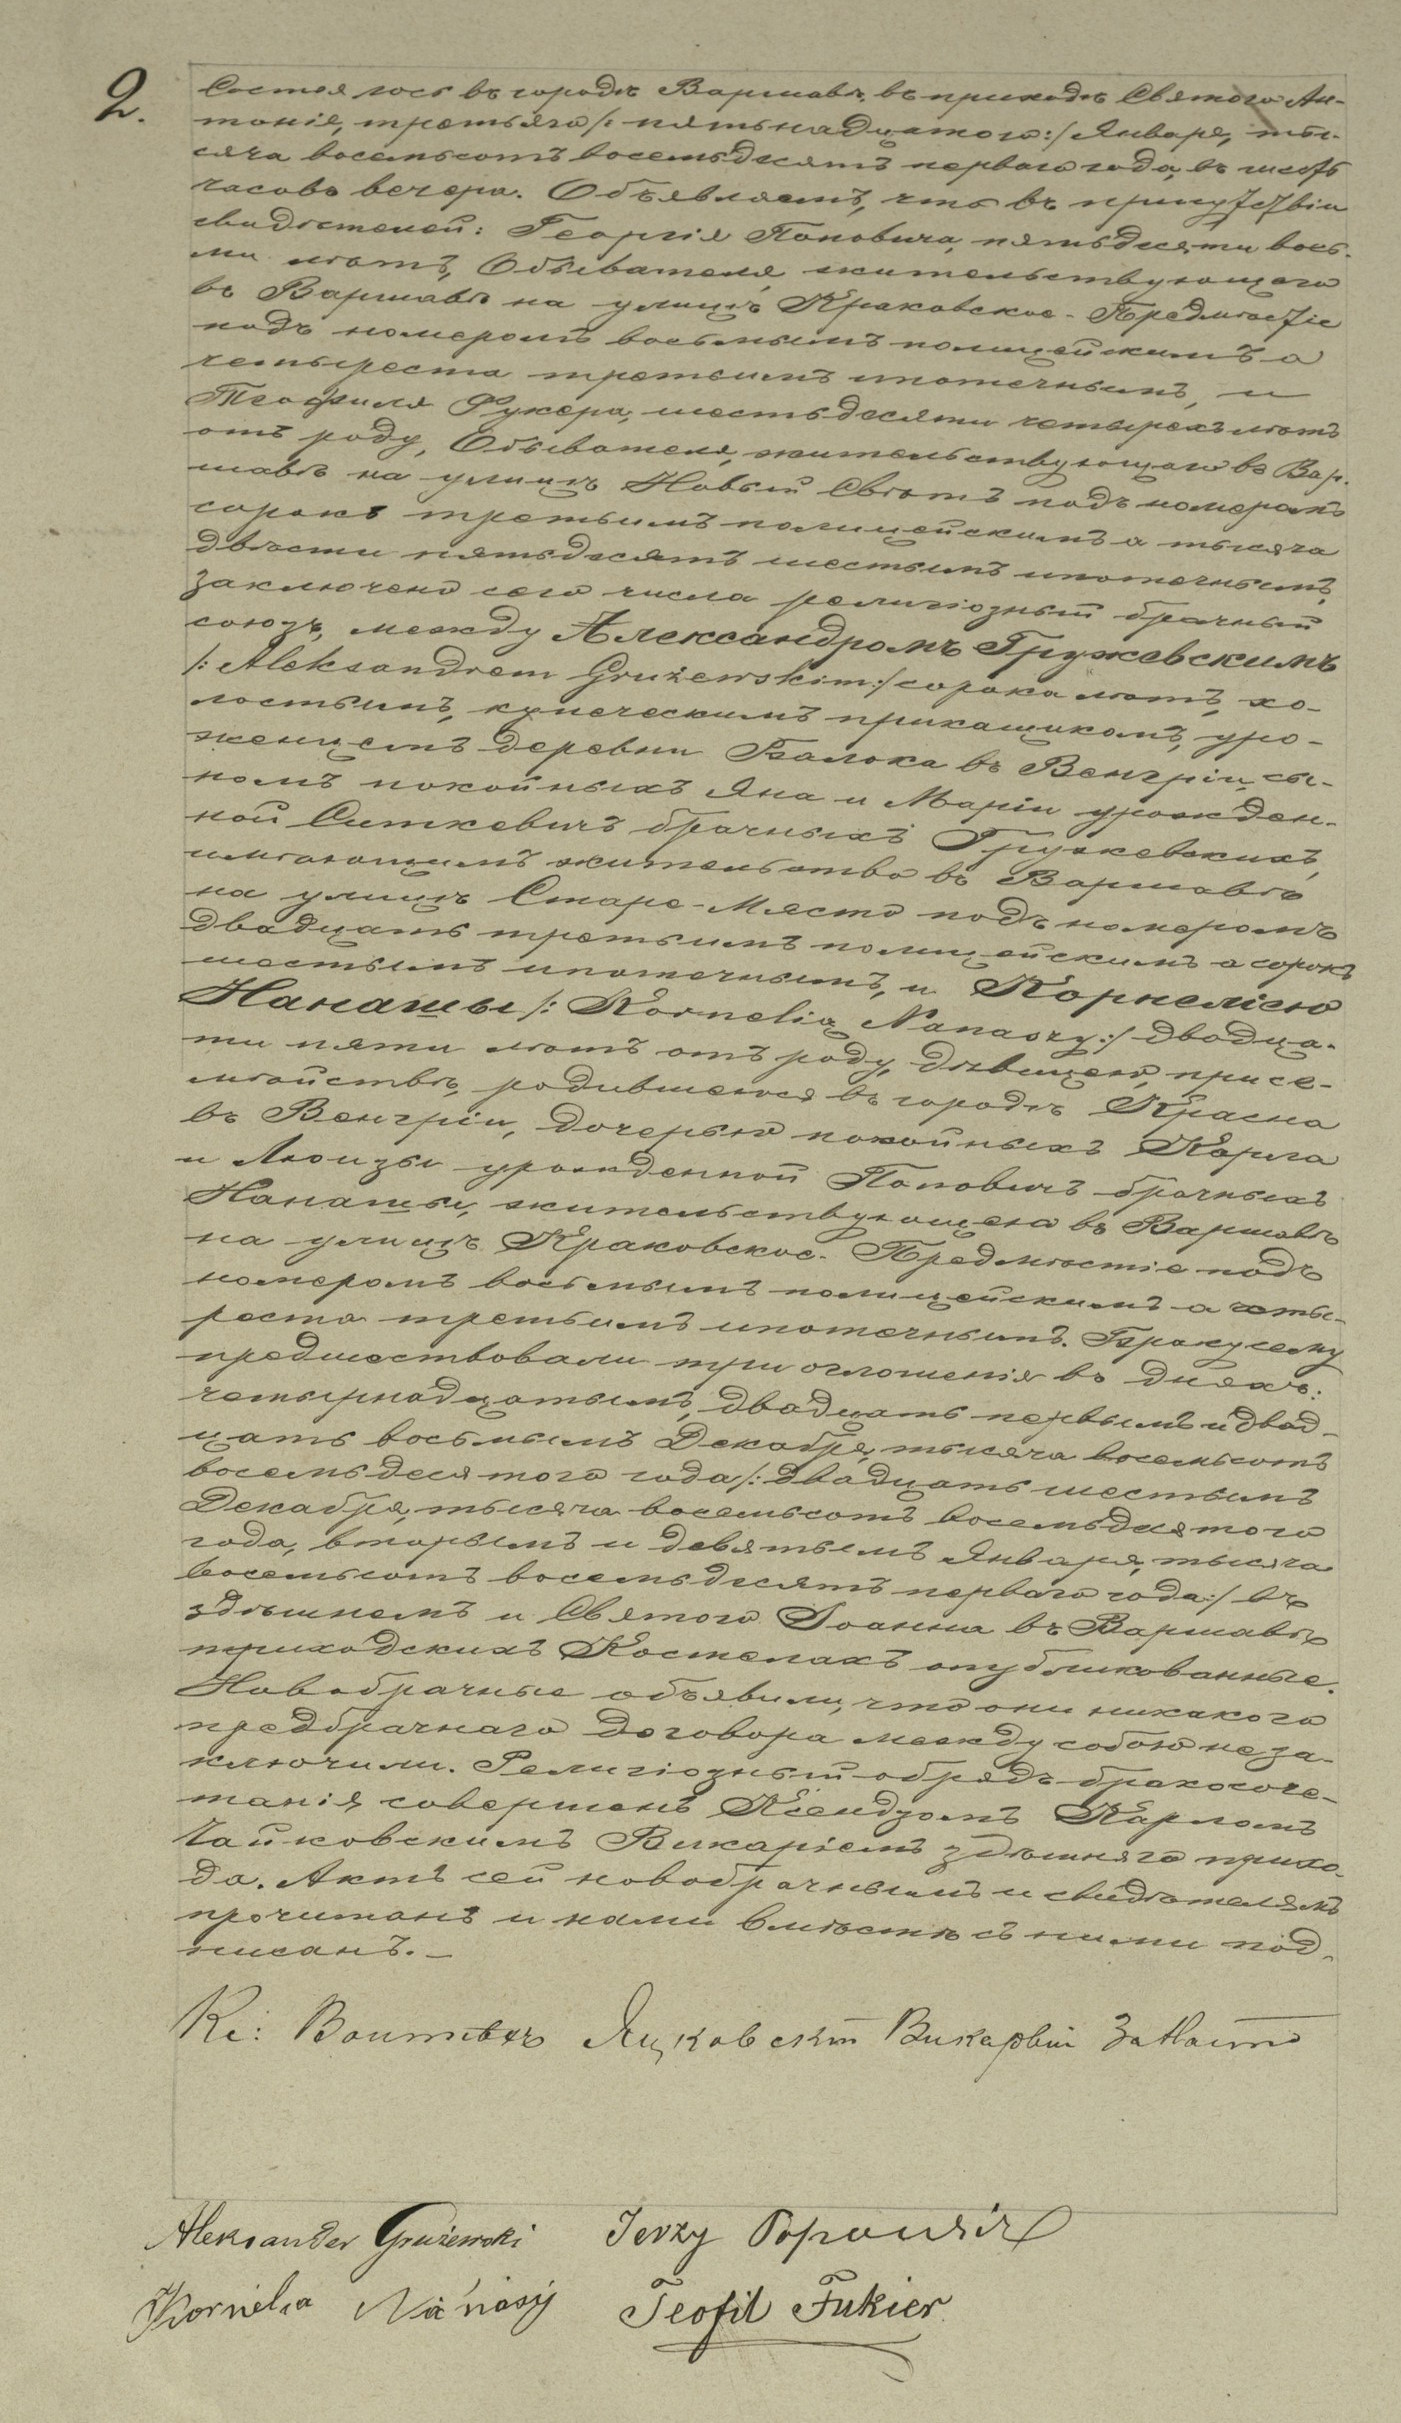 2.
Состоялось въ городѣ Варшавѣ, въ приходѣ Святого Ан-
тонія, третьяго /: пятьнадцатого :/ Января, ты-
сяча восемьсотъ восемьдесятъ перваго года, въ шесть
часовъ вечера. Объявляемъ, что въ присутствіи
свидѣтелей: Георгія Поповича, пятьдесяти вось-
ми лѣтъ, Обывателя, жительствующаго
въ Варшавѣ на улицѣ Краковское-Предмѣстіе
подъ номеромъ восьмымъ полицейскимъ а
четыреста третьимъ ипотечнымъ, и
Теофиля Фукера, шестьдесяти четырехъ лѣтъ
отъ роду, Обывателя, жительствующаго въ Вар-
шавѣ на улицѣ Новый Свѣтъ подъ номеромъ
сорокъ третьимъ полицейскимъ а тысяча
двѣсти пятьдесятъ шестымъ ипотечнымъ,
заключенъ сего числа религіозный брачный
союзъ, между Александромъ Гружевскимъ
/: Aleksandrem Grużewskim :/ сорока лѣтъ, хо-
лостымъ, купеческимъ прикащикомъ, уро-
женцемъ деревни Балока въ Венгріи, сы-
номъ покойныхъ Яна и Маріи урожден-
ной Ситкевичъ брачныхъ Гружевскихъ,
имѣющимъ жительство въ Варшавѣ
на улицѣ Старе-Място подъ номеромъ
двадцать третьимъ полицейскимъ а сорокъ
шестымъ ипотечнымъ, и Корнеліею
Нанашы /: Kornelią Nanaszy :/ двадца-
ти пяти лѣтъ отъ роду, дѣвицею, при се-
мѣйствѣ, родившеюся въ городѣ Красна
въ Венгріи, дочерью покойныхъ Карла
и Люизы урожденной Поповичъ брачныхъ
Нанашы, жительствующею въ Варшавѣ
на улицѣ Краковское-Предмѣстіе подъ
номеромъ восьмымъ полицейскимъ а четы-
реста третьимъ ипотечнымъ. Браку сему
предшествовали три оглошенія въ дняхъ:
четырнадцатымъ, двадцать первымъ и двад-
цать восьмымъ Декабря, тысяча восемьсотъ
восемьдесятого года /: двадцать шестымъ
Декабря, тысяча восемьсотъ восемьдесятого
года, вторымъ и девятымъ Января, тысяча
восемьсотъ восемьдесятъ перваго года :/ въ
здѣшнемъ и Святого Іоанна въ Варшавѣ
приходскихъ Костелахъ опубликованные.
Новобрачные объявили, что они никакого
предбрачнаго договора между собою не за-
ключили. Религіозный обрядъ бракосоче-
танія совершенъ Ксендзомъ Карломъ
Чайковскимъ Викаріемъ здѣшняго прихо-
да. Актъ сей новобрачнымъ и свидѣтелямъ
прочитанъ и нами вмѣстѣ съ ними под-
писанъ.—
Кс: Воитѣхъ Яцковскій Викарій
Aleksander Grużewski Jerzy Popowicz
Kornelia Nánásÿ Teofil Fukier